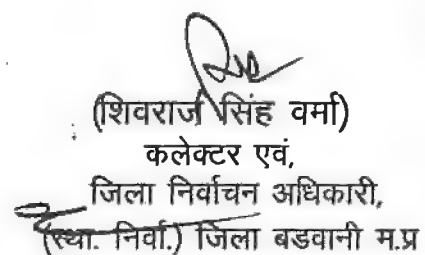 (शिवराज सिंह वर्मा)
कलेक्टर एवं,
जिला निर्वाचन अधिकारी,
(स्था. निर्वा.) जिला बडवानी म.प्र